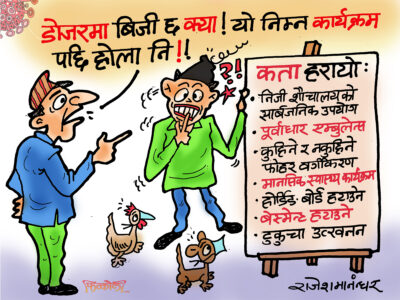 डोजरमा बिजी छ क्या! यो निम्न कार्यक्रम
पछि होला नि!!
?!
कता हरायो:
• निजी शौचालयको
सार्वजनिक उपयोग
• पूर्वाधार एम्बुलेन्स
• कुहिने र नकुहिने
फोहर वर्गीकरण
• मानसिक स्वास्थ्य कार्यक्रम
• होर्डिङ बोर्ड हटाउने
• बेस्मेन्ट हटाउने
• टुकुचा उत्खनन
राजेशमानन्धर